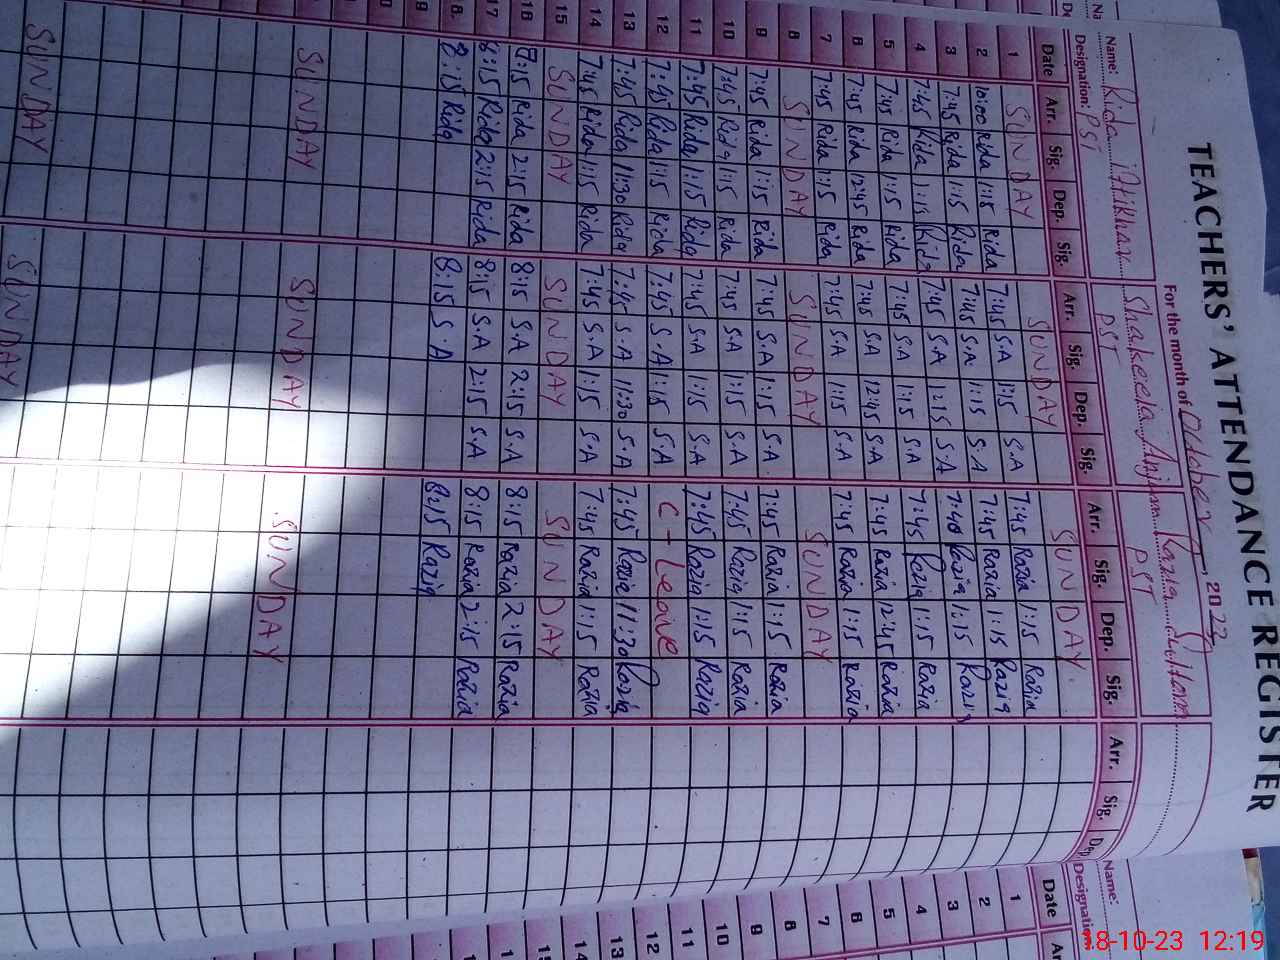 TEACHERS' ATTENDANCE REGISTER
For the month of October, 2023
Name: Rida Iftikhar Shakeela Anjum Razia Sultana
Designation: PST PST PST
Date Arr. Sig. Dep. Sig. Arr. Sig. Dep. Sig. Arr. Sig. Dep. Sig. Arr. Sig. Dep.
1 SUNDAY SUNDAY SUNDAY
2 10:00 Rida 1:15 Rida 7:45 S.A 1:15 S.A 7:45 Razia 1:15 Razia
3 7:45 Rida 1:15 Rida 7:45 S.A 1:15 S.A 7:45 Razia 1:15 Razia
4 7:45 Rida 1:15 Rida 7:45 S.A 1:15 S.A 7:40 Razia 1:15 Razia
5 7:45 Rida 1:15 Rida 7:45 S.A 1:15 S.A 7:45 Razia 1:15 Razia
6 7:45 Rida 12:45 Rida 7:45 S.A 12:45 S.A 7:45 Razia 12:45 Razia
7 7:45 Rida 1:15 Rida 7:45 S.A 1:15 S.A 7:45 Razia 1:15 Razia
8 SUNDAY SUNDAY SUNDAY
9 7:45 Rida 1:15 Rida 7:45 S.A 1:15 S.A 7:45 Razia 1:15 Razia
10 7:45 Rida 1:15 Rida 7:45 S.A 1:15 S.A 7:45 Razia 1:15 Razia
11 7:45 Rida 1:15 Rida 7:45 S.A 1:15 S.A 7:45 Razia 1:15 Razia
12 7:45 Rida 1:15 Rida 7:45 S.A 1:15 S.A C-Leave
13 7:45 Rida 11:30 Rida 7:45 S.A 11:30 S.A 7:45 Razia 11:30 Razia
14 7:45 Rida 1:15 Rida 7:45 S.A 1:15 S.A 7:45 Razia 1:15 Razia
15 SUNDAY SUNDAY SUNDAY
16 8:15 Rida 2:15 Rida 8:15 S.A 2:15 S.A 8:15 Razia 2:15 Razia
17 8:15 Rida 2:15 Rida 8:15 S.A 2:15 S.A 8:15 Razia 2:15 Razia
18 8:15 Rida 8:15 S.A 8:15 Razia
SUNDAY SUNDAY SUNDAY
SUNDAY SUNDAY
Name:
Designation:
Date
1
2
3
4
5
6
7
8
9
10
11
12
13
14
18-10-23 12:19